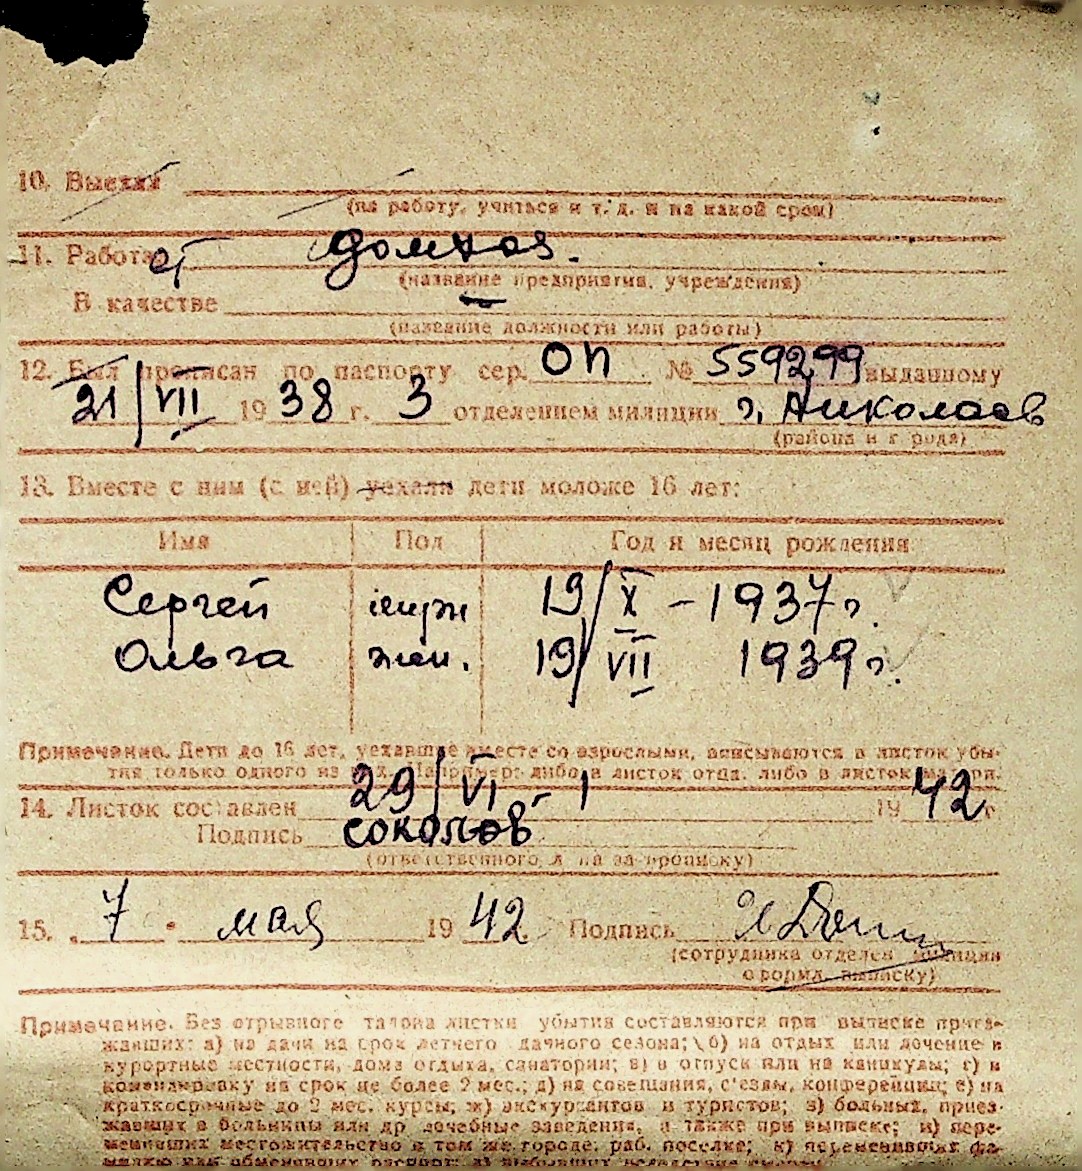 10. Выехал
(на работу, учиться и т. д. и на какой срок)
11. Работает домхоз.
(название предприятия, учреждения)
В качестве
(название должности или работы)
12. Был прописан по паспорту сер. ОП № 559299 выданному
21/VII 1938 г. 3 отделением милиции г. Николаев
(района и города)
13. Вместе с ним (с ней) уехали дети моложе 16 лет:
Имя Пол Год и месяц рождения
Сергей муж 19/X - 1937 г.
Ольга жен. 19/VII 1939 г.
Примечание. Дети до 16 лет, уехавшие вместе со взрослыми, вписываются в листок убы-
тия только одного из них. Например: либо в листок отца, либо в листок матери.
14. Листок составлен 29/VI - 1942 г.
Подпись соколов
(ответственного л на за прописку)
15. 7 " мая 1942 Подпись
(сотрудника отделен милиции
оформл. выписку)
Примечание. Без отрывного талона листки убытия составляются при выписке приез-
жавших: а) на дачи на срок летнего дачного сезона; б) на отдых или лечение в
курортные местности, дома отдыха, санатории; в) в отпуск или на каникулы; г) в
командировку на срок не более 2 мес.; д) на совещания, с'езды, конференции; е) на
краткосрочные до 2 мес. курсы; ж) экскурсантов и туристов; з) больных, приез-
жавших в больницы или др лечебные заведения, а также при выписке; и) пере-
менивших местожительство в том же городе, раб. поселке; к) переменивших фа-
милию или обменявших паспорт; л) выбывших вследствие смерти.